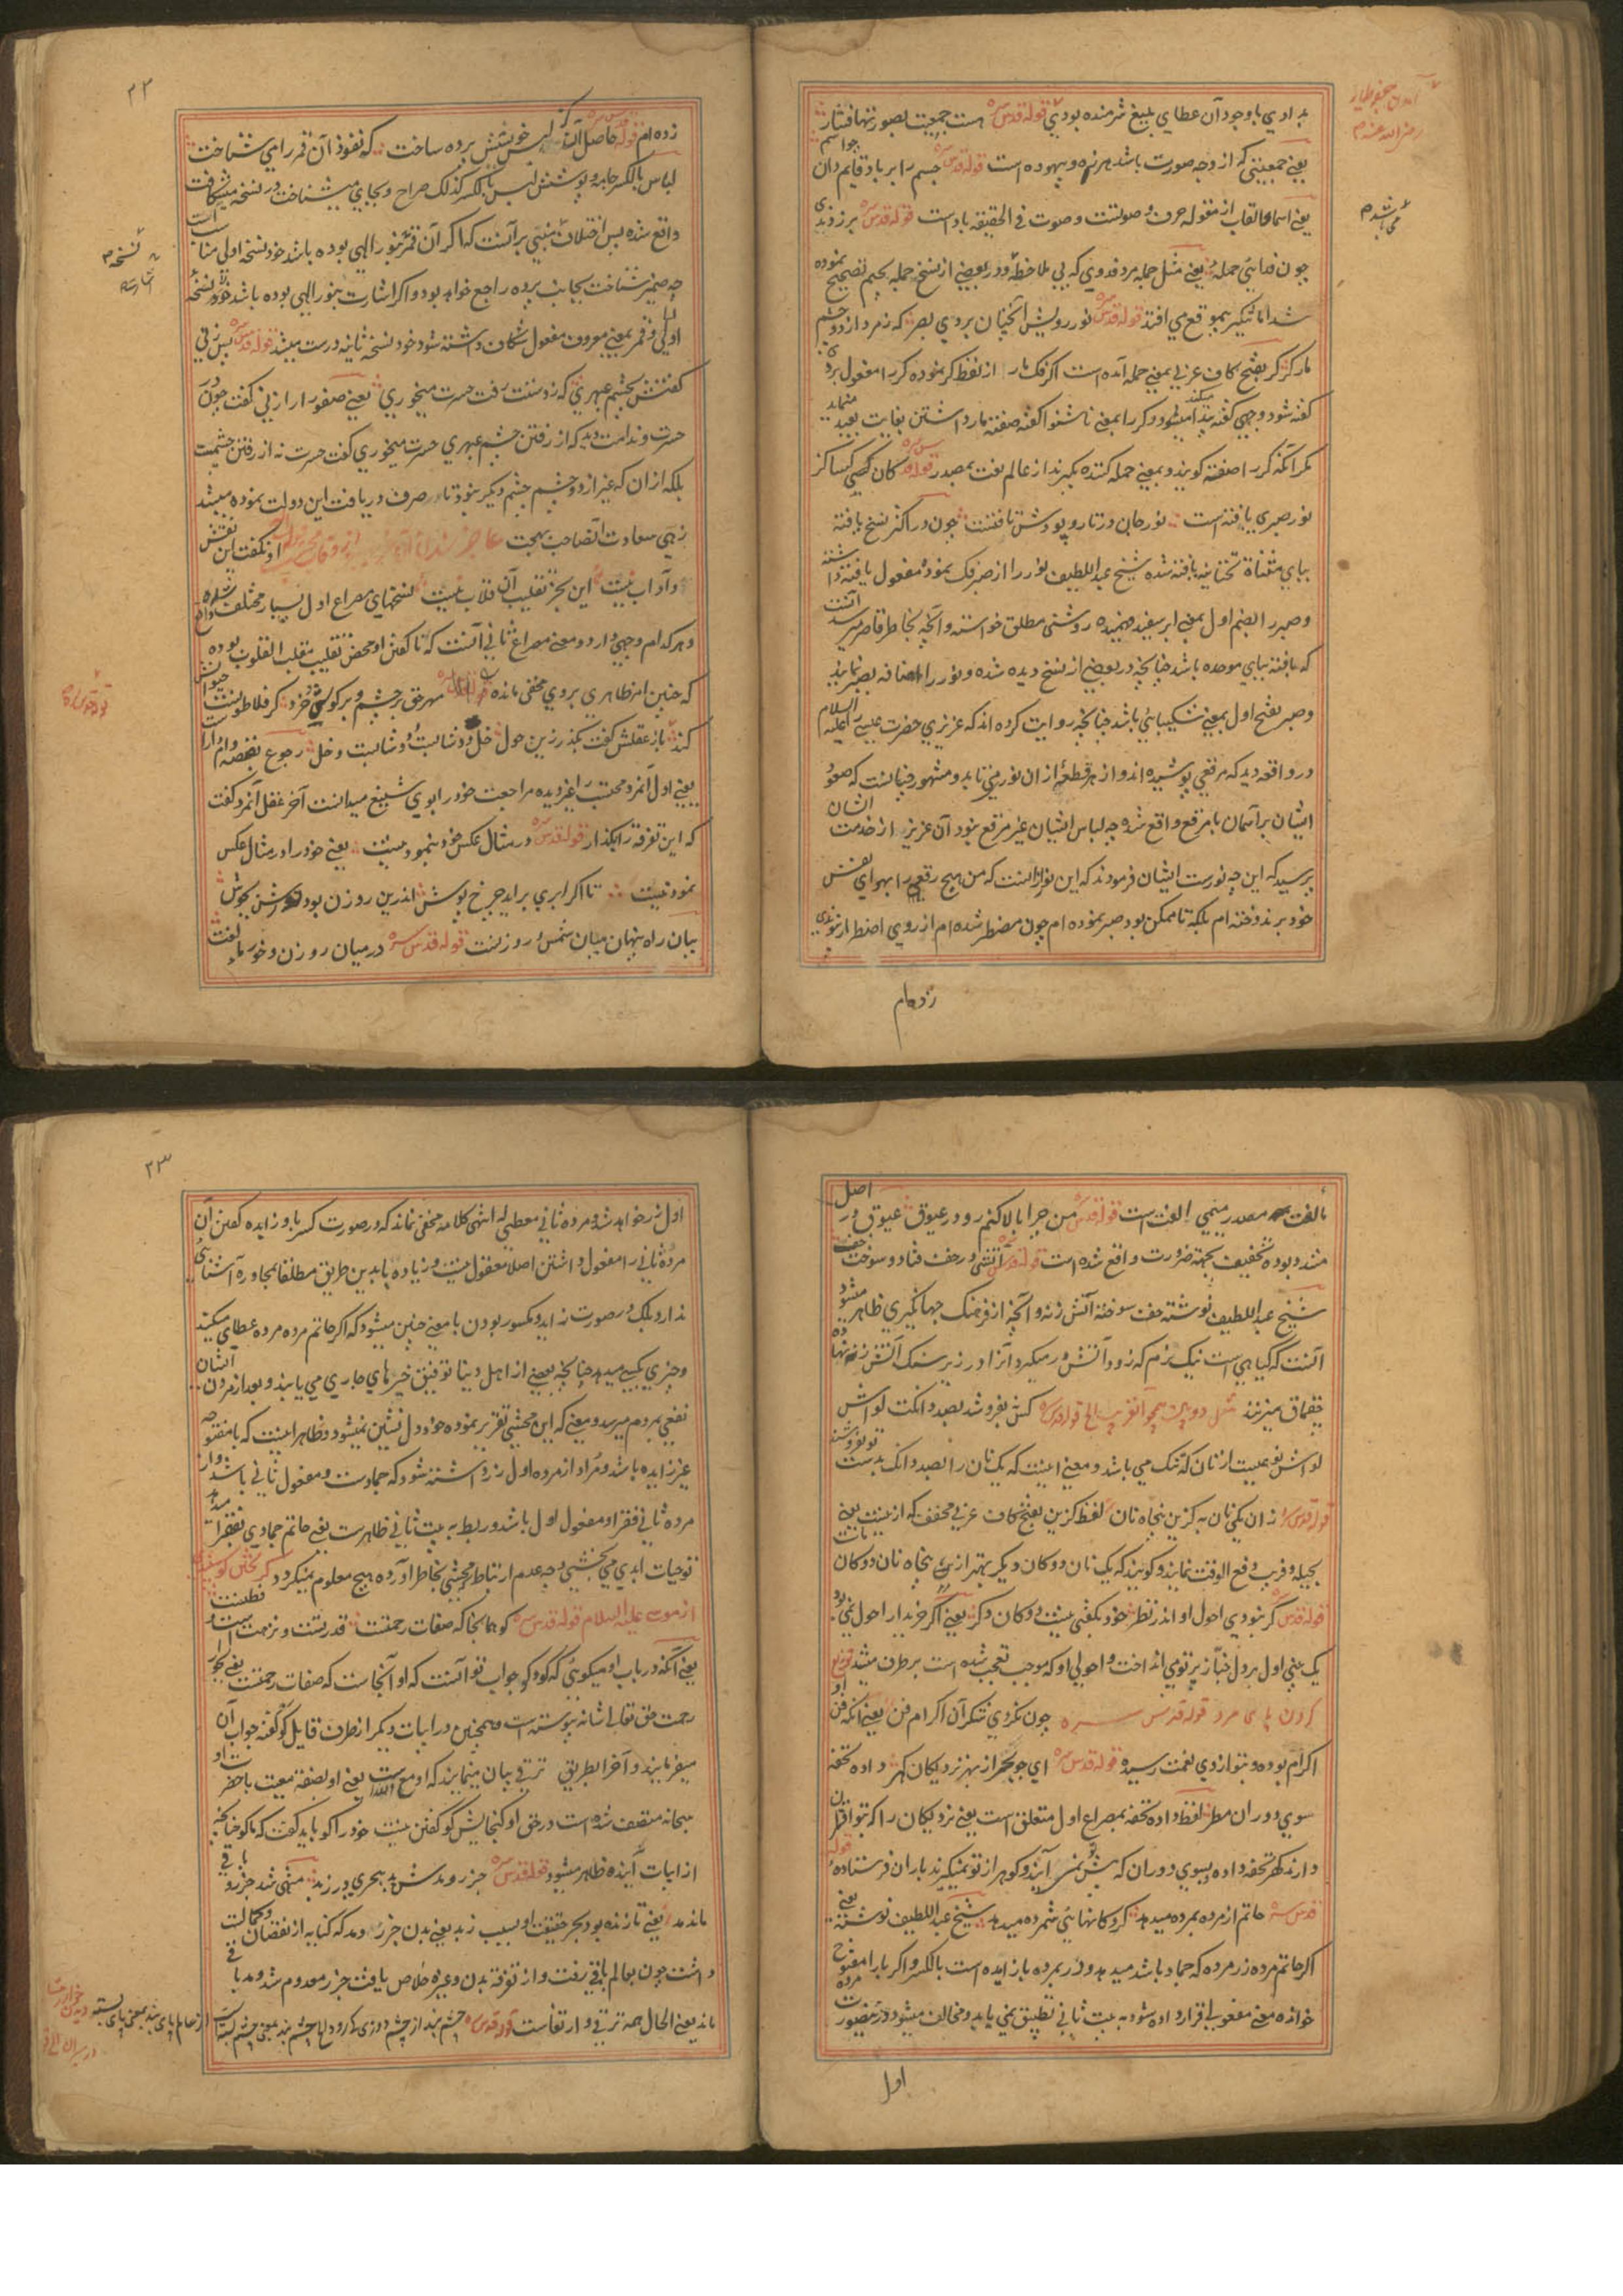 بدادی باوجود آن عطای بلیغ شرمنده بودی قوله قدس سره هست جمعیت بصورتها فشار
یعنی جمعیتی که از وجه صورت باشد هرزه و بیهوده است قوله قدس سره جسم را بر باد قایم دان چو اسم
یعنی اسما و القاب از مقوله حرف و صوتست و صوت فی الحقیقه باد است قوله قدس سره برزدند
چون فدایئی حمله یعنی مثل حمله مرد فدوی که بی ملاحظه و در بعضی از نسخ جمله بجیم تصحیح نموده
شد اما تنکیر بموقع می افتد قوله قدس سره نور رویش آنچنان بردی بصر که زمرد از دو چشم
مار کر کر بفتح کاف عربی بمعنی حمله آمده است اگر فک بار از لفظ کر نموده کر را مفعول برد
گفته شود و جهی گفته پیدا میکند و کر را بمعنی ناشنوا گفته صفت مار داشتن بغایت بعید مینماید
مگر آنکه کر را صفت گویند و بمعنی حمله کننده بگیرند از عالم نعت بمصدر قوله قدس سره کان کسی کساکز
نور صبری یافته است نور جان در تار و پودش تافتست چون در اکثر نسخ یافته
بیای مثناة تحتانیه یافته شده شیخ عبد اللطیف نور را از صبر فک نموده مفعول یافته داشته
و صبر را بضم اول بمعنی ابر سفید فهمیده روشنی مطلق خواسته و آنچه بخاطر قاصر میرسد آنست
که بافته ببای موحده باشد چنانچه در بعضی از نسخ دیده شده و نور را اضافه بصبر نمایند
و صبر بفتح اول بمعنی شکیبائی باشد چنانچه روایت کرده اند که عزیزی حضرت عیسی را علیه السلام
در واقعه دید که مرقعی پوشیده اند و از هر قطعه از آن نور می تابد و مشهور چنانست که صعود
ایشان بر آسمان با مرقع واقع شده چه لباس ایشان غیر مرقع نبود آن عزیز از خدمت ایشان
پرسید که این چه نورست ایشان فرمودند که این نور از آنست که من هیچ رقعه را بهوای نفس
خود بر ندوخته ام بلکه تا ممکن بود صبر نموده ام چون مضطر شده ام از روی اضطرار پیوندی
زده ام
می باشد م
۲۲
زده ام قوله قدس سره حاصل آنکز لبس خویشش پرده ساخت که نفوذ آن قمر را می شناخت
لباس بالکسر جامه و پوشش لبس بالکسر کذلک صراح و بجای میشناخت در نسخه میشکافت
واقع شده پس اختلاف مبنی بر آنست که اگر آن قمر بنور الهی بوده باشد خود نسخه اولی مناسب است
چه ضمیر شناخت بجانب پرده راجع خواهد بود و اگر اشارت بنور الهی بوده باشد خود نسخه
اولی و قمر بمعنی معروف مفعول شکاف داشته شود خود نسخه ثانیه درست میشد قوله قدس سره پس زنی
گفتش بچشم عبهری که ز دستت رفت حسرت میخوری یعنی صفورا را زنی گفت چون
حسرت و ندامت دید که از رفتن چشم عبهری حسرت میخوری گفت حسرت نه از رفتن چشمیست
بلکه از آن که غیر از دو چشم چشم دیگر نبود تا در صرف دریافت این دولت نموده میشد
زهی سعادت آنصاحب بهجت
و آداب نیست این بجز تقلیب آن قلاب نیست نسخهای مصراع اول بسیار مختلف واقع شده
و هر کدام وجهی دارد و معنی مصراع ثانی آنست که ناگفتن او محض تقلیب مقلب القلوب بوده
که چنین امر ظاهری بروی مخفی مانده مهر حق بر چشم و بر گوش خرد گر فلاطونست حیوانش
کند باز عقلش گفت بگذر زین حول خل دوشابست و دوشابست و خل رجوع بقصه وام دار است
یعنی اول آنمرد محتسب را غیر دیده مراجعت خود را بوی شنیع میدانست آخر عقل آنمرد گفت
که این تفرقه را بگذار قوله قدس سره در مثال عکس خود بنمود نیست یعنی خود را در مثال عکس
نمود نیست تا اگر ابری براید چرخ پوش اندرین روزن بود نورش بجوش
بیان راه پنهان میان شمس و روزنست قوله قدس سره در میان روزن و خور الفت
نسخه م
قوله قدس سره م
بالفت مصدر میمی الفت است قوله قدس سره من چرا بالا کنم رو در عیوق عیوق در اصل
مشدد بوده تخفیف بجهة ضرورت واقع شده است قوله قدس سره آتشی در حف فتاد و سوخت حف
شیخ عبد اللطیف نوشته حف سوخته آتش زنه و آنچه از فرهنگ جهانگیری ظاهر میشود
آنست که گیاهی است نیک نرم که زود آتش در میگیرد و آنرا در زیر سنگ آتش زنه نهاده
چقماق میزنند مثل دوبین همچو آنغریب الخ قوله قدس سره کش بفروشد بصد دانگت لواش
لواش نوعیست از نان که تنگ می باشد و معنی اینست که یک نان را بصد دانگ بدست تو نفروشند
قوله قدس سره زان یکی نان به کزین پنجاه نان لفظ کزین بفتح کاف عربی مخفف که از نیست یعنی
بحیله و فریب دفع الوقت نمایند و گویند که یک نان دوکان دیگر بهتر از پنجاه نان دوکان ماست
قوله قدس سره گر نبودی احول او اندر نظر خود بگفتی نیست دوکان دگر یعنی اگر خریدار احول نمی بود
یک بینی اول بر دل خباز پرتوی انداخت و احولی او که موجب تعجب شده است بر طرف میشد
کردن پای مرد قوله قدس سره چون نکردی شکر آن اکرام فن یعنی آنکه فن او
اکرام بوده و بتو از وی نعمت رسیده قوله قدس سره ای چو بحر از بهر نزدیکان گهر داده تحفه
سوی دوران مطر لفظ داده تحفه بمصراع اول متعلق است یعنی نزدیکان را که بتو اقتران
دارند گهر تحفه داده و بسوی دوران که پیش نمی آیند و گوهر از تو نمیگیرند باران فرستاده قوله
قدس سره حاتم از مرده بمرده میدهد گردکانهایی شمرده میدهد شیخ عبد اللطیف نوشته یعنی
اگر حاتم مرده زر مرده که جماد باشد میدهد و در بمرده با زایده است بالکسر و اگر با را مفتوح
خوانده معنی مفعولی قرار داده شود به بیت ثانی تطبیق نمی یابد و مخالف میشود و درینصورت مرده
اول
۲۳
اول زر خواهد شد و مرده ثانی معطی له انتهی کلامه مخفی نماند که در صورت کسر با و زایده گفتن آن
مرده ثانی را مفعول داشتن اصلا معقول نیست و زیاده با بدین طریق مطلقا بمجاوره آشنائی
ندارد بلکه در صورت زاید و مکسور بودن با معنی چنین میشود که اگر حاتم مرده مرده عطای میکند
و چیزی بکسی میدهد چنانچه بعضی از اهل دنیا توفیق خیرهای جاری می یابند و بعد از مردن ایشان
نفعی بمردم میرسد و معنی که این محشی تقریر نموده خود دلنشین نمیشود و ظاهر اینست که با مفتوحه
غیر زایده باشد و مراد از مرده اول زر داشته شود که جمادست و مفعول ثانی باشد و از
مرده ثانی فقرا و مفعول اول باشد و ربط به بیت ثانی ظاهرست یعنی حاتم جمادی بفقرا میدهد
تو حیات ابدی می بخشی وجه عدم ارتباط که محشی بخاطر آورده هیچ معلوم نمیگردد
از موسی علیه السلام قوله قدس سره کو همانجا که صفات رحمتست قدرتست و نزهتست و فطنتست
یعنی آنکه در باب او میگوئی که کو کو جواب تو آنست که او آنجاست که صفات رحمتست یعنی بجوار
رحمت حق تعالی شانه پیوسته است و همچنین در ابیات دیگر از طرف قایل کو گفته جواب آن
میفرمایند و آخر بطریق ترقی بیان مینمایند که او مع الله است یعنی او بصفة معیت با حضرت او
سبحانه متصف شده است در حق او گنجایش کو گفتن نیست خود را کو باید گفت که ما کو چنانچه
از ابیات آینده ظاهر میشود قوله قدس سره جزر و مدش بد ببحری در زبد منتهی شد جزر و باقی
ماند مد یعنی تا زنده بود بحر حقیقت او بسبب زبد یعنی بدن جزر و مد که کنایه از نقصان و کمالست
داشت چون بعالم باقی رفت و از تفرقه بدن و غیره خلاص یافت جزر معدوم شد و مد باقی
ماند یعنی الحال همه ترقی و ارتفاعست قوله قدس سره چشم بند از چشم دوزی که رود الخ چشم بند بمعنی چشم بسته است از عالم پای بند بمعنی پای بسته